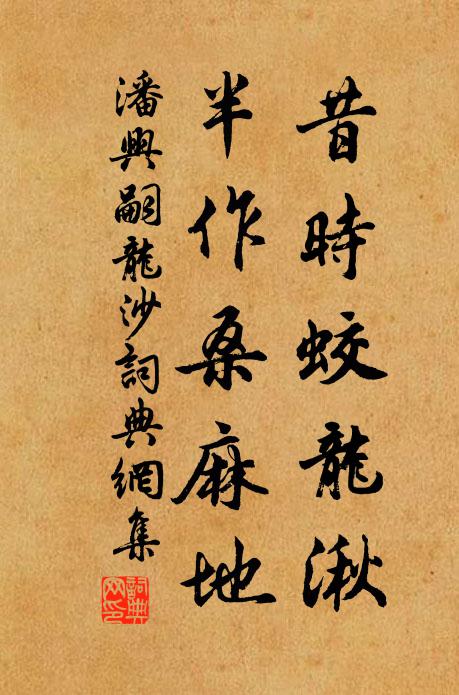 昔時蛟龍湫
半作桑麻地
潘興嗣龍沙詞典網集
詞典網印